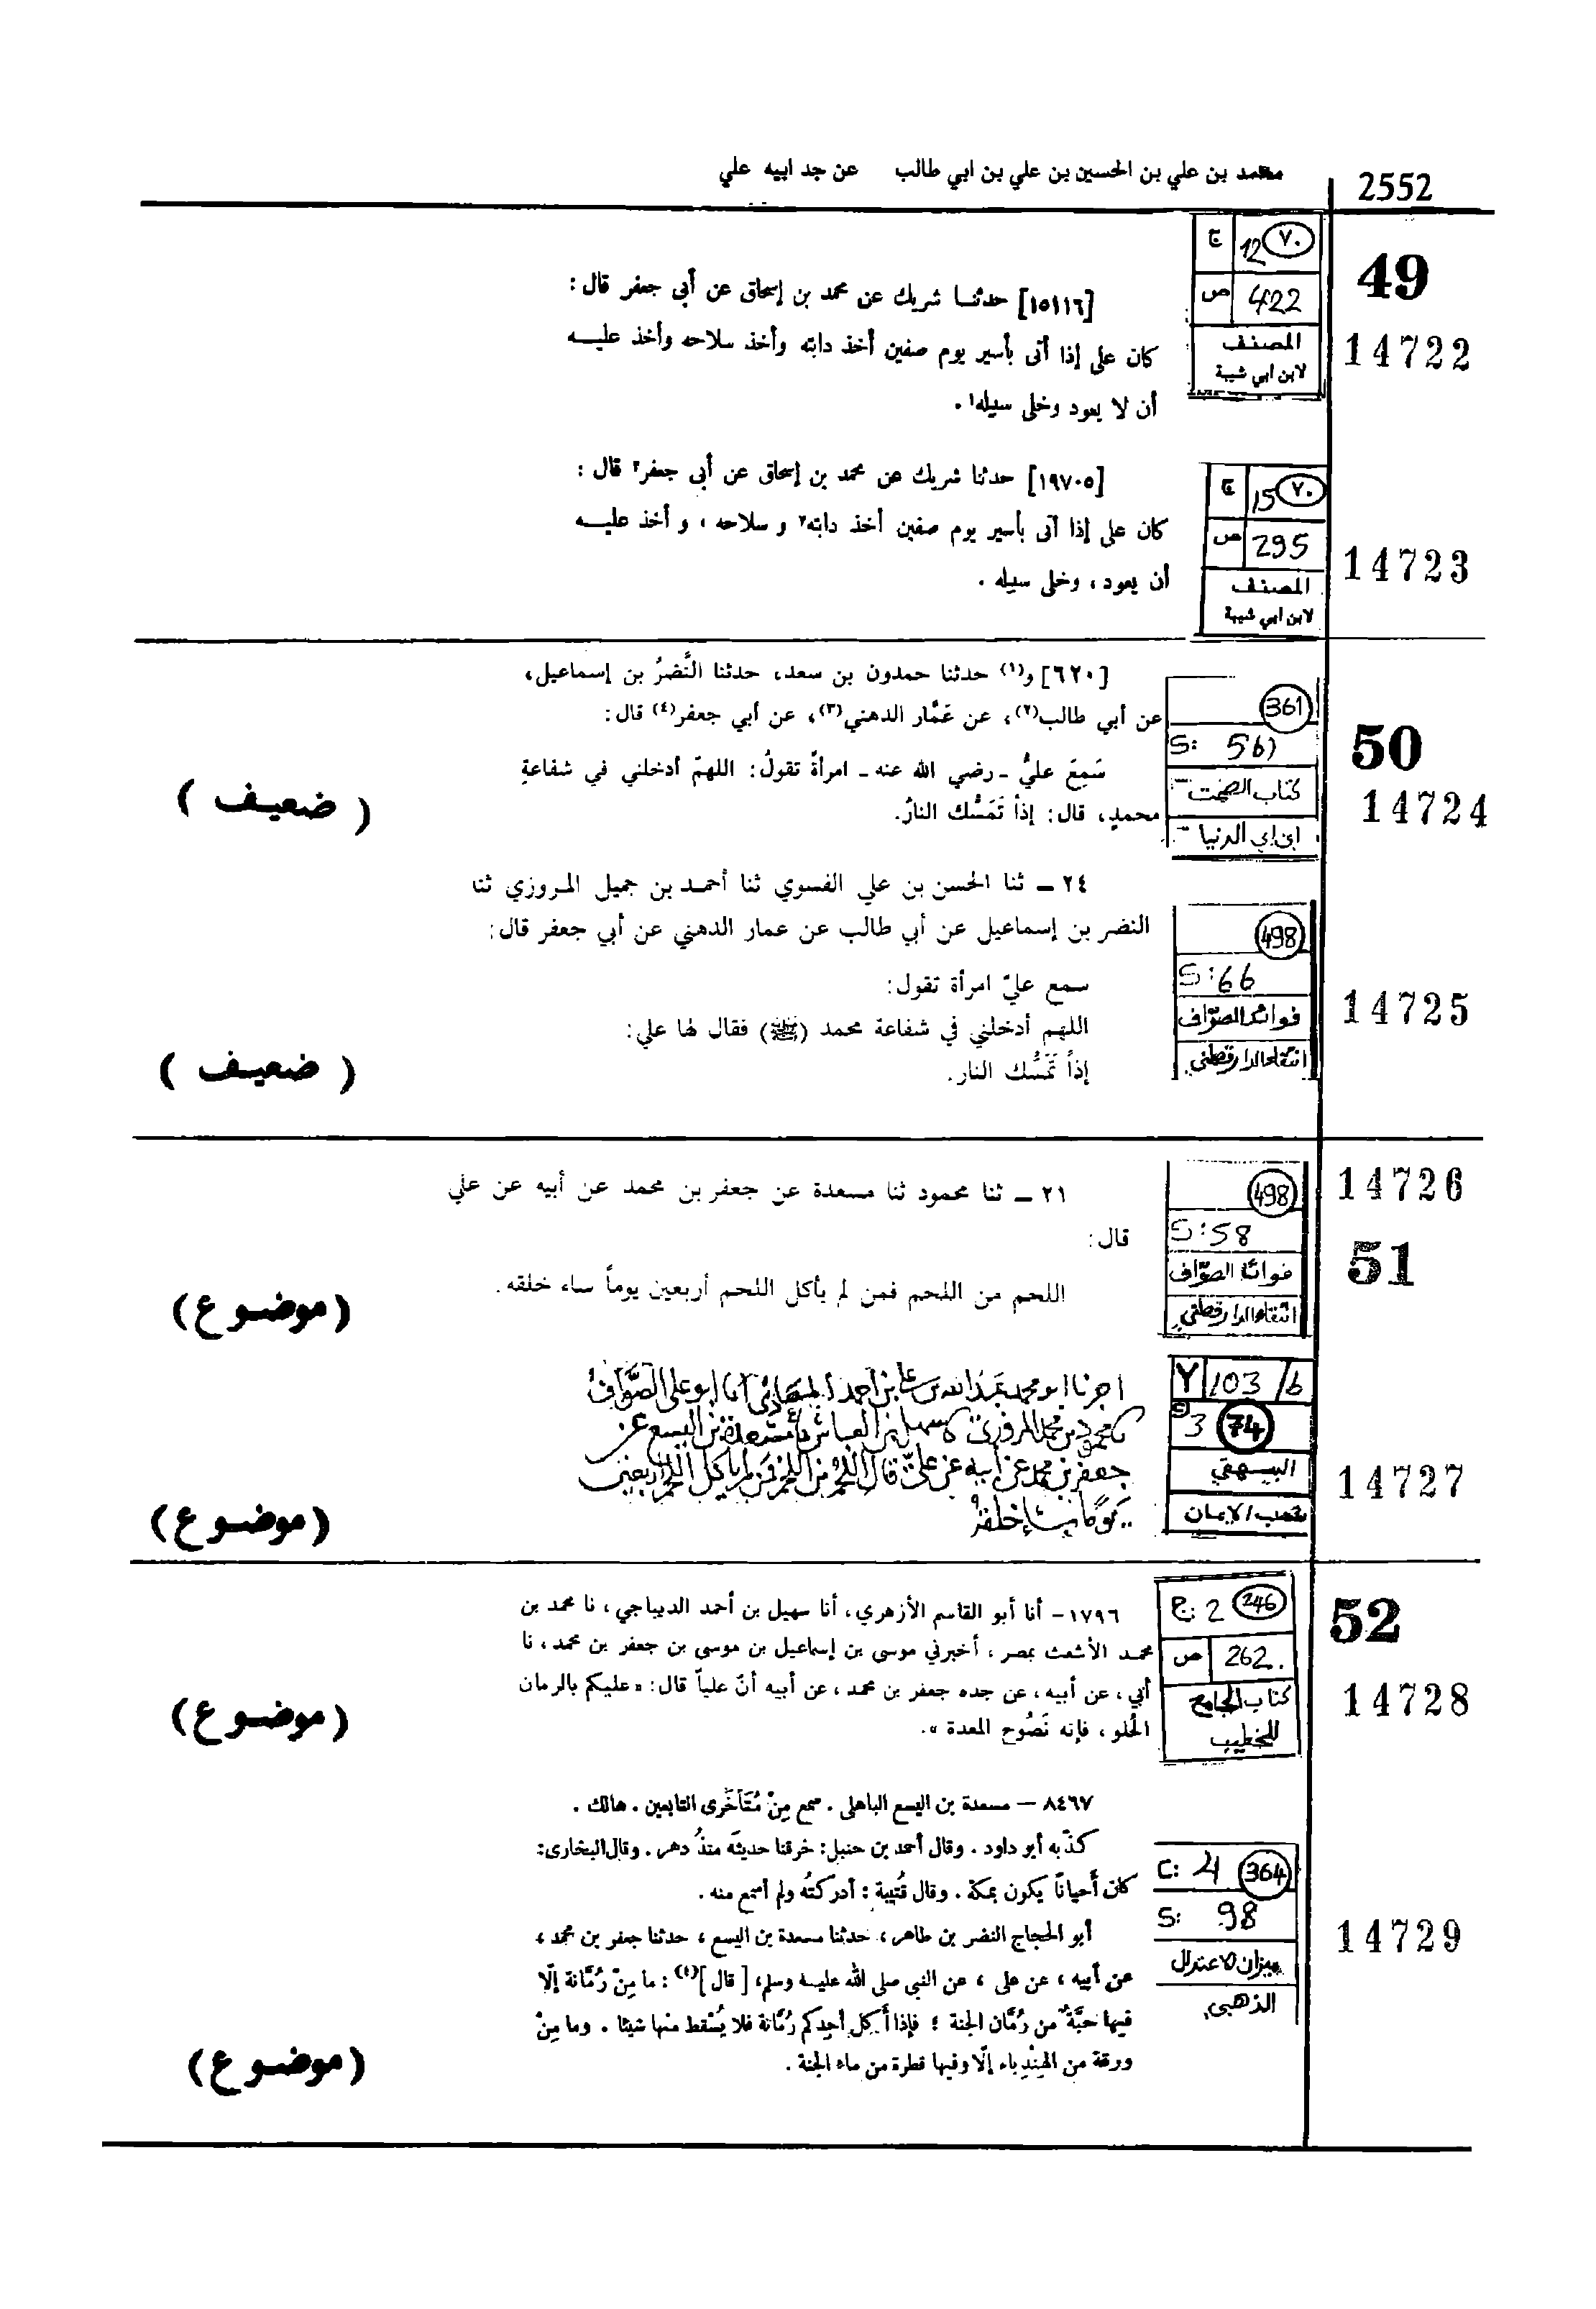 2552
محمد بن علي بن الحسين بن علي بن ابي طالب عن جد ابيه علي
49
14722
ج 12 ٧٠
ص 422
المصنف
لابن ابي شيبة
[١٥١١٦] حدثنا شريك عن محمد بن إسحاق عن أبى جعفر قال:
كان على إذا أتى بأسير يوم صفين أخذ دابته وأخذ سلاحه وأخذ عليه
أن لا يعود وخلى سيله١.
14723
ج 15 ٧٠
ص 295
المصنف
لابن ابي شيبة
[١٩٧٠٥] حدثنا شريك عن محمد بن إسحاق عن أبى جعفر٢ قال:
كان على إذا آتى بأسير يوم صفين أخذ دابته٣ و سلاحه، و أخذ عليه
أن يعود، وخلى سيله.
50
14724
361
S: 561
كتاب الصمت
ابن ابي الدنيا
[٦٢٠] و(١) حدثنا حمدون بن سعد، حدثنا النَّضرُ بن إسماعيل،
عن أبي طالب(٢)، عن عَمَّار الدهني(٣)، عن أبي جعفر(٤) قال:
سَمِعَ عليٌّ - رضي الله عنه - امرأةً تقولُ: اللهمّ أدخلني في شفاعةِ
محمدٍ، قال: إذاً تَمَسُّك النارُ.
( ضعيف )
14725
498
S: 66
فوائد الصوّاف
انتقاء الدارقطني
٢٤ - ثنا الحسن بن علي الفسوي ثنا أحمد بن جميل المروزي ثنا
النضر بن إسماعيل عن أبي طالب عن عمار الدهني عن أبي جعفر قال:
سمع عليّ امرأة تقول:
اللهم أدخلني في شفاعة محمد (ﷺ) فقال لها علي:
إذاً تَمَسُّك النار.
( ضعيف )
14726
51
498
S: 58
فوائد الصوّاف
انتقاء الدارقطني
٢١ - ثنا محمود ثنا مسعدة عن جعفر بن محمد عن أبيه عن علي
قال:
اللحم من اللحم فمن لم يأكل اللحم أربعين يوماً ساء خلقه.
(موضوع)
14727
Y 103/b
3 74
البيهقي
شعب الايمان
محمد عبد الله بن علي بن أحمد أبو علي الصواف
محمود بن محمد المروزي سهل بن العباس مسعدة بن اليسع عن
جعفر بن محمد عن أبيه عن علي قال اللحم من اللحم فمن لم يأكل اللحم أربعين
يوما ساء خلقه
(موضوع)
52
14728
ج: 2 246
ص 262
كتاب الجامع
للخطيب
١٧٩٦ - أنا أبو القاسم الأزهري، أنا سهيل بن أحمد الديباجي، نا محمد بن
محمد الأشعث بمصر، أخبرني موسى بن إسماعيل بن موسى بن جعفر بن محمد، نا
أبي، عن أبيه، عن جده جعفر بن محمد، عن أبيه أنّ علياً قال: «عليكم بالرمان
الحُلو، فإنه نَضُوح المعدة».
(موضوع)
14729
C: 4 364
S: 98
ميزان الاعتدال
الذهبي
٨٤٦٧ - مسعدة بن اليسع الباهلى. سمع مِنْ مُتَأَخِّرى التابعين. هالك.
كذّبه أبو داود. وقال أحمد بن حنبل: خرقنا حديثَه منذُ دهر. وقال البخارى:
كان أحيانًا يكون بمكة. وقال قُتيبة: أدركتُه ولم أسمع منه.
أبو الحجاج النضر بن طاهر، حدثنا مسعدة بن اليسع، حدثنا جعفر بن محمد،
عن أبيه، عن على، عن النبي صلى الله عليه وسلم، [قال](١): ما مِنْ رُمَّانة إلّا
فيها حبَّةٌ من رُمَّان الجنة؛ فإذا أكل أحدكم رُمَّانة فلا يُسْقط منها شيئا. وما مِنْ
ورقة من الهِنْدِباء إلّا وفيها قطرة من ماء الجنة.
(موضوع)